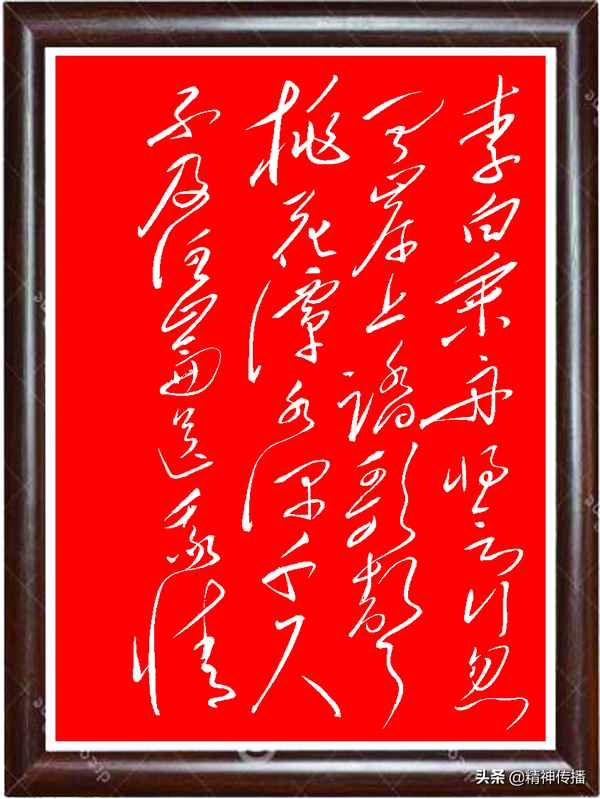 李白乘舟将欲行忽
聞岸上踏歌聲
桃花潭水深千尺
不及汪倫送我情
头条 @精神传播